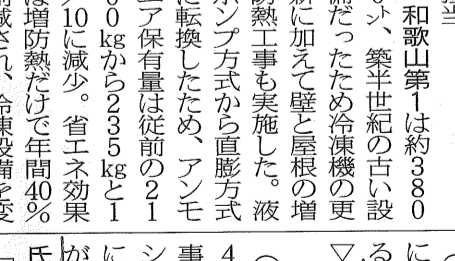 和歌山第1は約380
㌧、築半世紀の古い設
備だったため冷凍機の更
新に加えて壁と屋根の増
防熱工事も実施した。液
ポンプ方式から直膨方式
に転換したため、アンモ
ニア保有量は従前の21
00kgから235kgと1
/10に減少。省エネ効果
は増防熱だけで年間40%
削減され、冷凍設備を変
に
る
▽
(
4
事
シ
に
が
氏